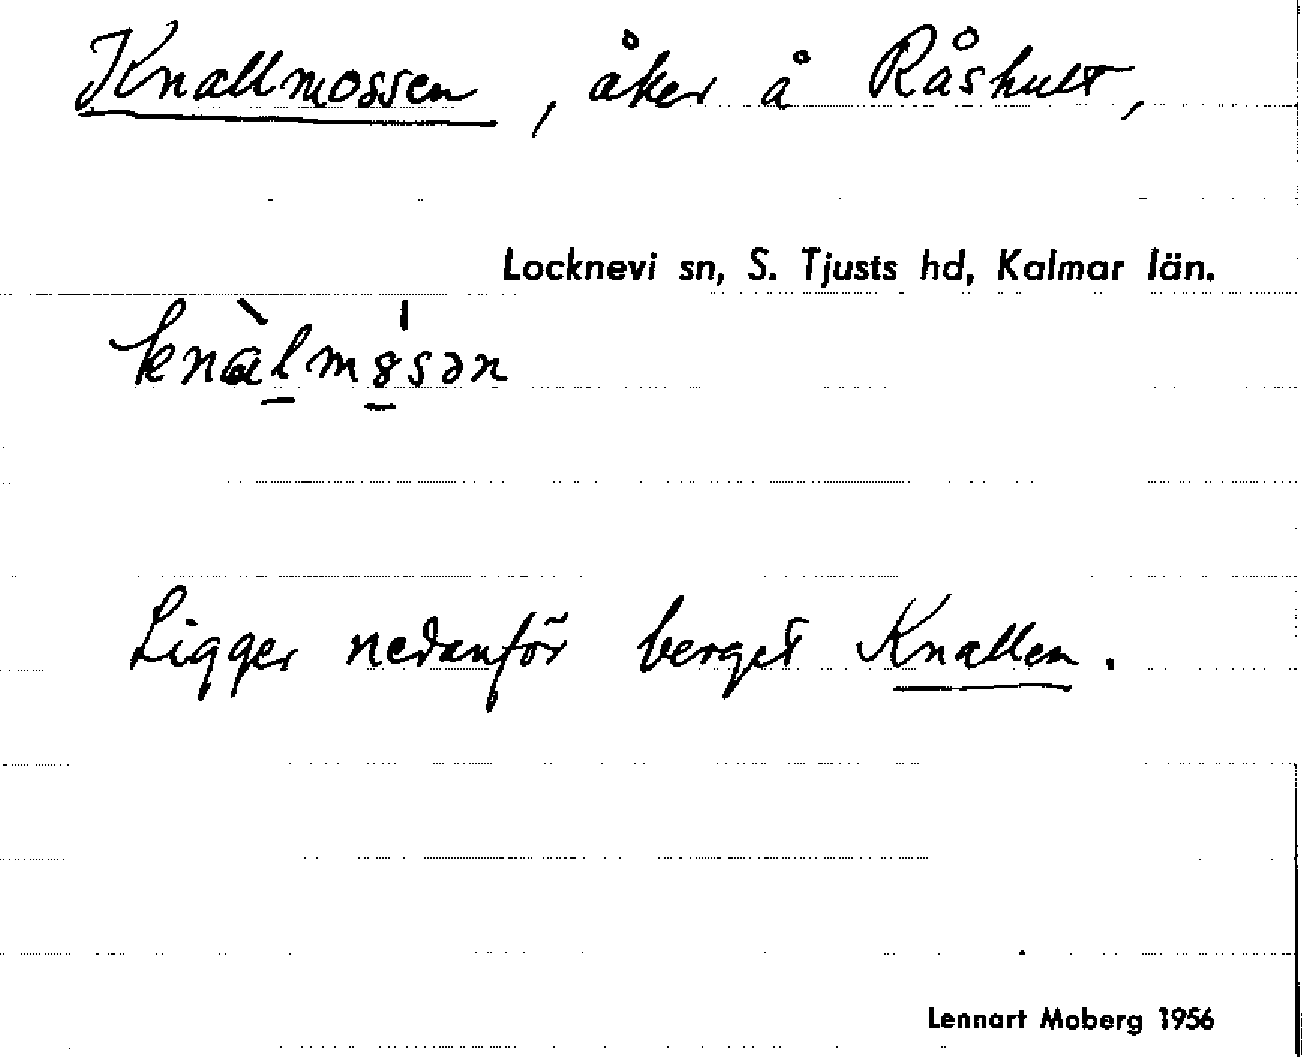 Knallmossen, åker å Råshult,
Locknevi sn, S. Tjusts hd, Kalmar län.
knàlmȣsən
Ligger nedanför berget Knallen.
Lennart Moberg 1956